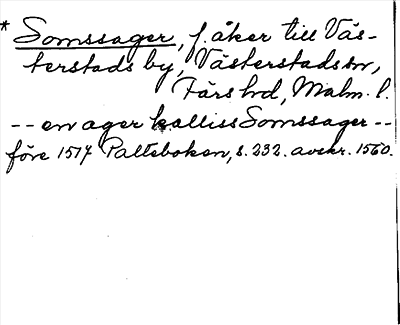 * Somssager, f. åker till Väs-
terstads by, Västerstads sn,
Färs hd, Malm. l.
-- en ager kalliss Somssager --
före 1517 Palteboken, s. 232. avskr. 1560.